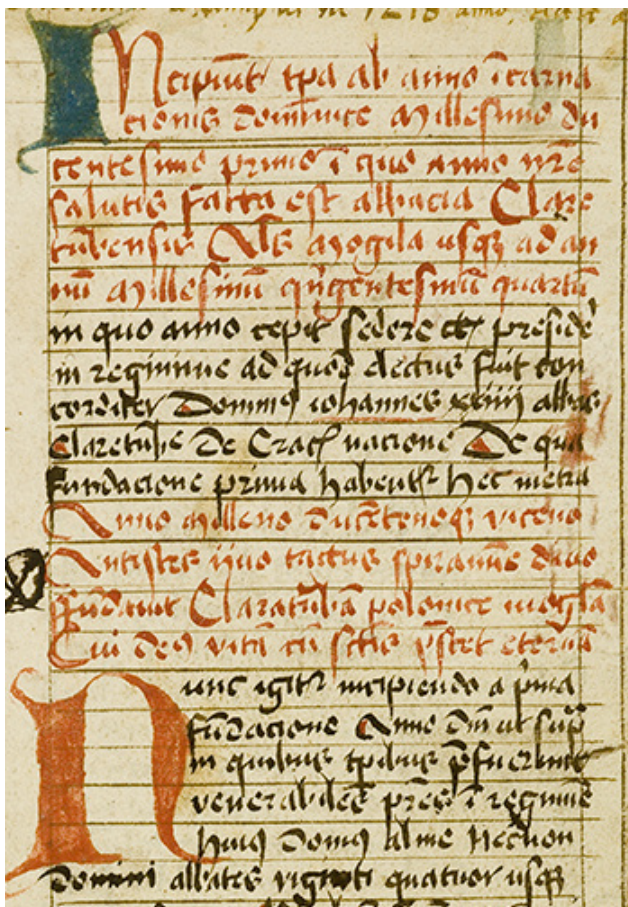 INcipiu̅t tp̅a ab anno i̅carna
cionis dominice Millesimo du
centesimo primo i̅ quo anno nr̅e
salutis facta est abbacia Clare
tu̅bensis al̅s Mogila usqꝫ ad an
nu̅ Millesimu̅ qi̅gentesimu̅ quartu̅
in quo anno cepit sedere et preside̅
in regimine ad quod electus fuit con
corditer Dominꝰ iohannes xxiiii abbas
Claretu̅be De Crac nacione De qua
fundacione prima habent̅r hec metra
Anno Milleno ducenteno qꝫ viceno
Antistes yvo tactus spiramine divo
fu̅davit Claratu̅ba̅ polonice mogila̅
Cui deꝰ vita̅ cu̅ sc̅tis p̅stet eterna̅
Nunc igit̅r incipiendo a p̅ma
fu̅dacione Anno dn̅i ut sup̅
in quibus tp̅ibus p̅fuerunt
venerabiles pr̅es i̅ regimine
huiꝰ domꝰ alme necnon
domini abbates viginti quatuor usqꝫ